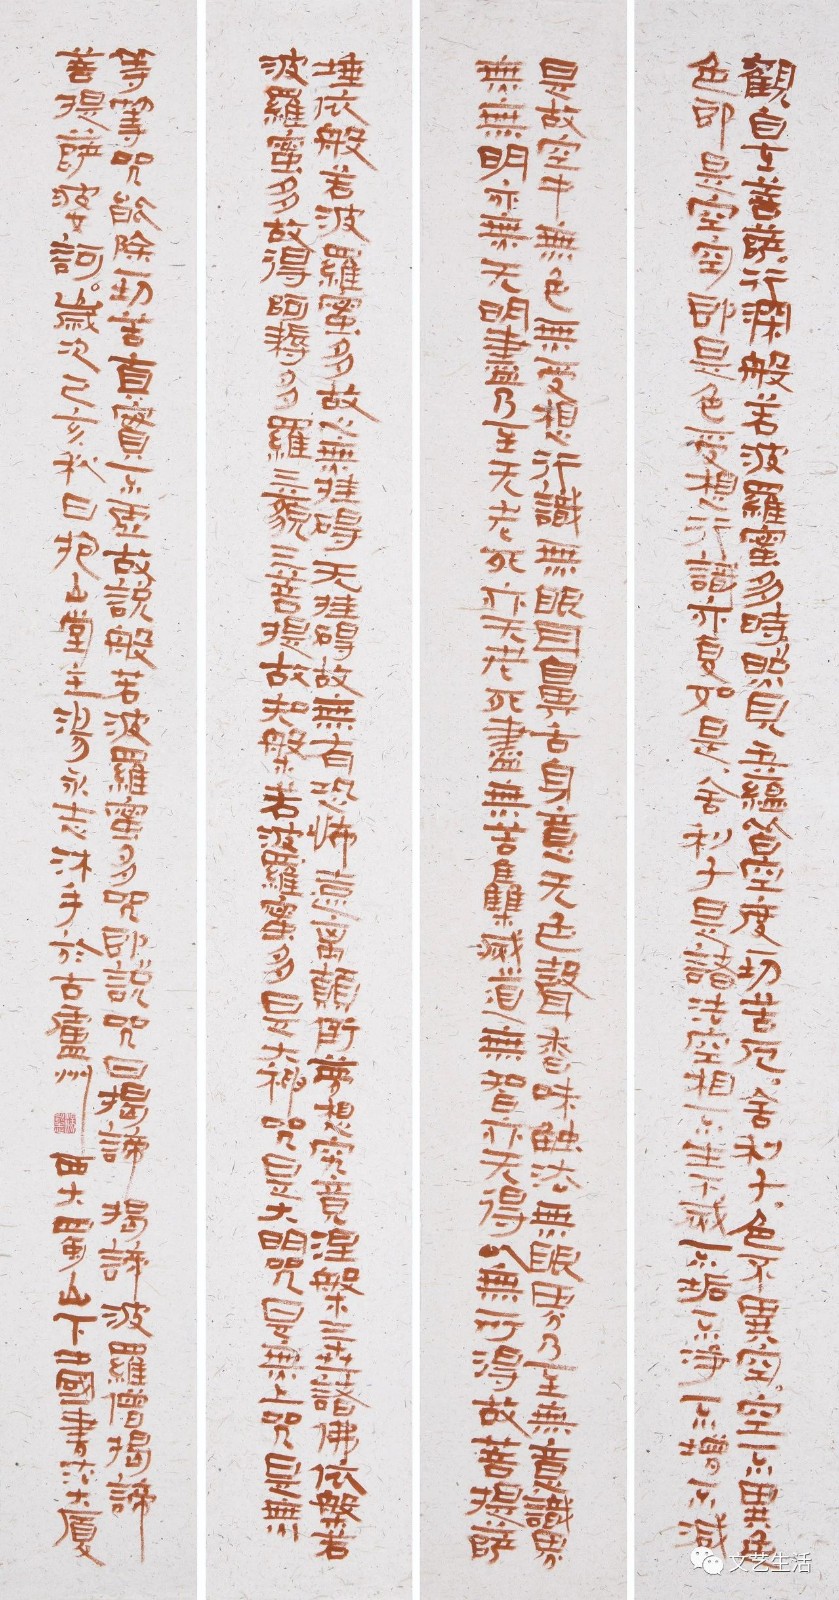 觀自在菩薩。行深般若波羅蜜多時照見五蘊皆空度一切苦厄。舍利子。色不異空。空不異色
色即是空空即是色受想行識亦復如是舍利子是諸法空相不生不滅不垢不淨不增不減
是故空中無色無受想行識無眼耳鼻舌身意无色聲香味触法無眼界乃至無意識界
無無明亦無无明盡乃至无老死亦无老死盡無苦集滅道無智亦无得以無所得故菩提薩
埵依般若波羅蜜多故心無挂碍无挂碍故無有恐怖遠離顛倒夢想究竟涅槃三世諸佛依般若
波羅蜜多故得阿耨多羅三藐三菩提故知般若波羅蜜多是大神咒是大明咒是無上咒是無
等等咒能除一切苦真實不虛故說般若波羅蜜多咒即說咒曰揭諦揭諦波羅僧揭諦
菩提薩婆訶。歲次己亥秋日抱山堂主湯永志沐手於古廬州西大蜀山下中國書法大廈
文艺生活